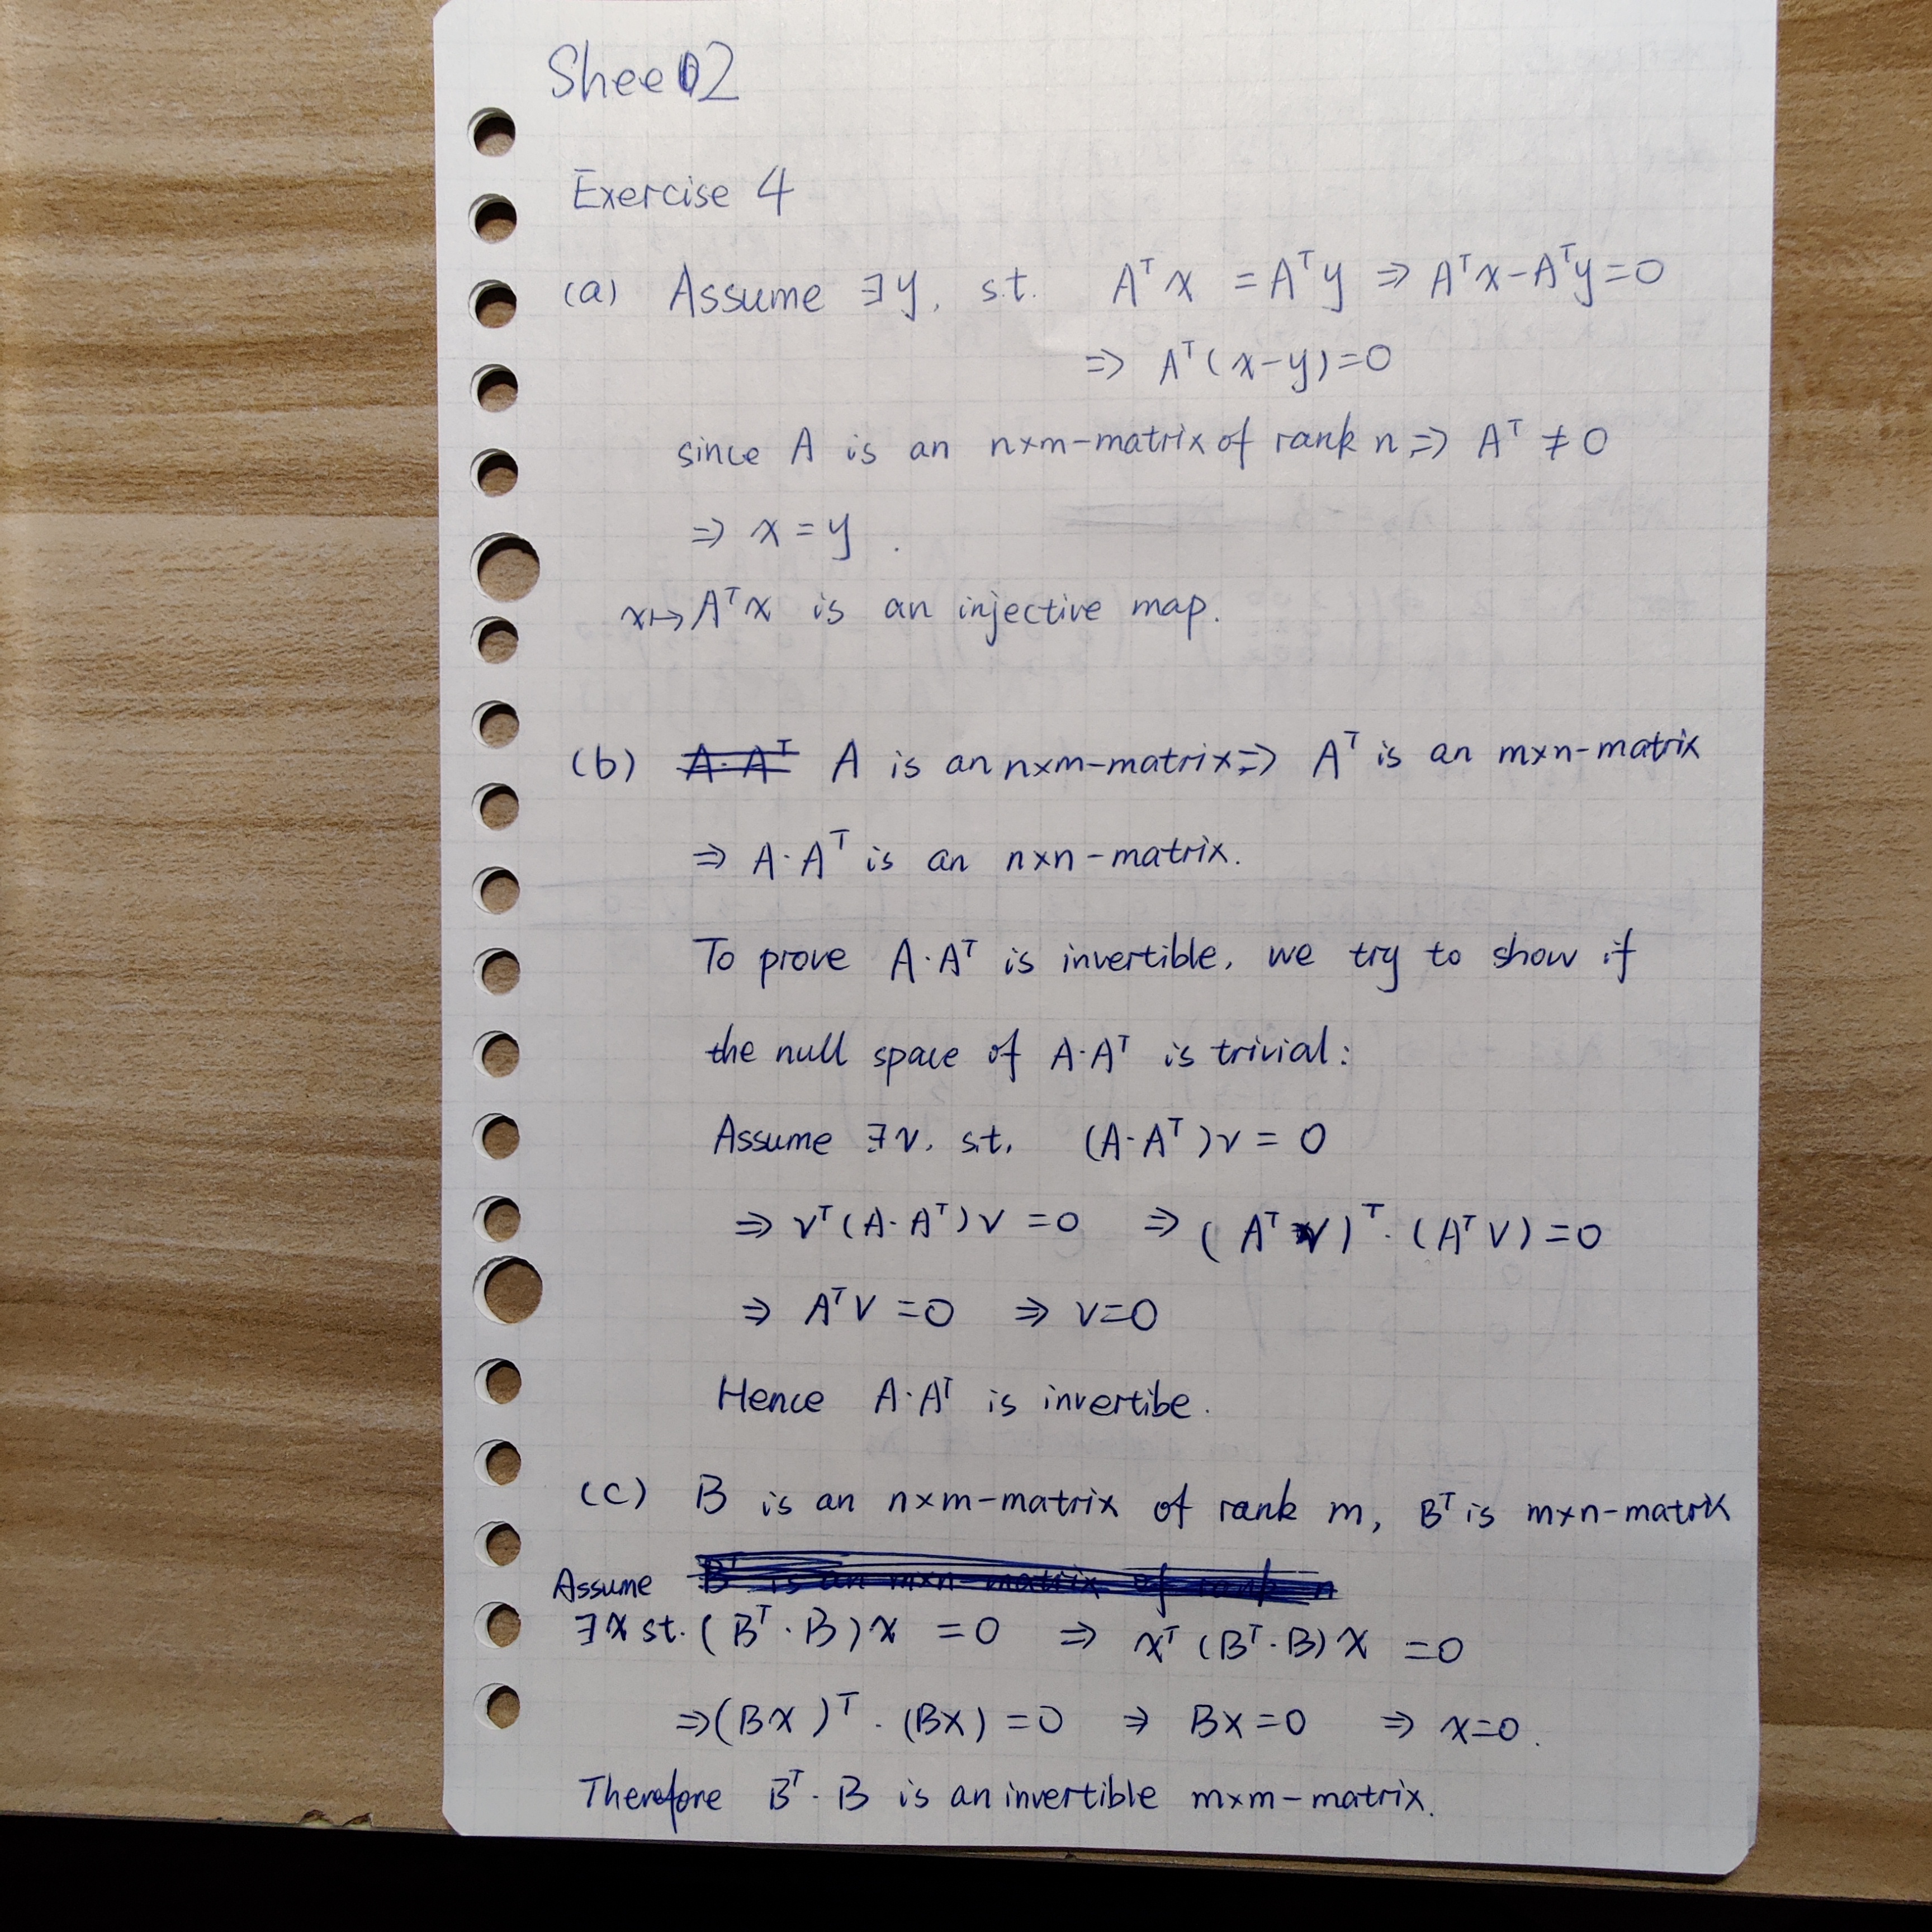 Shee02
Exercise 4
(a) Assume ∃y, s.t. Aᵀx = Aᵀy ⇒ Aᵀx-Aᵀy=0
⇒ Aᵀ(x-y)=0
since A is an n×m-matrix of rank n ⇒ Aᵀ ≠ 0
⇒ x = y .
x↦Aᵀx is an injective map.
(b) A·Aᵀ A is an n×m-matrix ⇒ Aᵀ is an m×n-matrix
⇒ A·Aᵀ is an n×n-matrix.
To prove A·Aᵀ is invertible, we try to show if
the null space of A·Aᵀ is trivial:
Assume ∃v, s.t. (A·Aᵀ)v = 0
⇒ vᵀ(A·Aᵀ)v = 0 ⇒ (Aᵀv)ᵀ·(Aᵀv)=0
⇒ Aᵀv = 0 ⇒ v=0
Hence A·Aᵀ is invertibe.
(c) B is an n×m-matrix of rank m, Bᵀ is m×n-matrix
Assume Bᵀ is an m×n-matrix of rank n
∃x st. (Bᵀ·B)x = 0 ⇒ xᵀ(Bᵀ·B)x = 0
⇒(Bx)ᵀ·(Bx)=0 ⇒ Bx=0 ⇒ x=0.
Therefore Bᵀ·B is an invertible m×m-matrix.